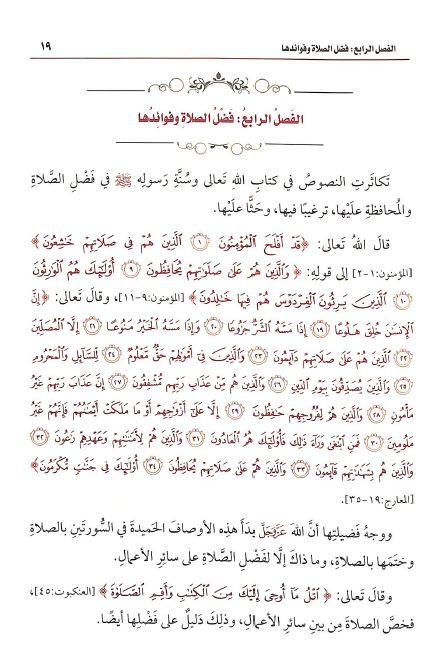 الفصل الرابع: فضل الصلاة وفوائدها ١٩
الفَصلُ الرابعُ: فَضْلُ الصلاةِ وفوائدُها
تَكاثَرتِ النصوصُ في كتابِ الله تَعالى وسُنَّةِ رَسولِه ﷺ في فَضْلِ الصَّلاةِ
والمُحافَظةِ علَيها، تَرغيبًا فيها، وحَثًّا علَيها.
قالَ اللهُ تَعالى: ﴿قَدْ أَفْلَحَ الْمُؤْمِنُونَ ١ الَّذِينَ هُمْ فِي صَلَاتِهِمْ خَاشِعُونَ﴾
[المؤمنون:١-٢] إلى قولِه: ﴿وَالَّذِينَ هُمْ عَلَى صَلَوَاتِهِمْ يُحَافِظُونَ ٩ أُولَٰئِكَ هُمُ الْوَارِثُونَ
١٠ الَّذِينَ يَرِثُونَ الْفِرْدَوْسَ هُمْ فِيهَا خَالِدُونَ﴾ [المؤمنون:٩-١١]، وقالَ تَعالى: ﴿إِنَّ
الْإِنسَانَ خُلِقَ هَلُوعًا ١٩ إِذَا مَسَّهُ الشَّرُّ جَزُوعًا ٢٠ وَإِذَا مَسَّهُ الْخَيْرُ مَنُوعًا ٢١ إِلَّا الْمُصَلِّينَ
٢٢ الَّذِينَ هُمْ عَلَى صَلَاتِهِمْ دَائِمُونَ ٢٣ وَالَّذِينَ فِي أَمْوَالِهِمْ حَقٌّ مَّعْلُومٌ ٢٤ لِّلسَّائِلِ وَالْمَحْرُومِ
٢٥ وَالَّذِينَ يُصَدِّقُونَ بِيَوْمِ الدِّينِ ٢٦ وَالَّذِينَ هُم مِّنْ عَذَابِ رَبِّهِم مُّشْفِقُونَ ٢٧ إِنَّ عَذَابَ رَبِّهِمْ غَيْرُ
مَأْمُونٍ ٢٨ وَالَّذِينَ هُمْ لِفُرُوجِهِمْ حَافِظُونَ ٢٩ إِلَّا عَلَى أَزْوَاجِهِمْ أَوْ مَا مَلَكَتْ أَيْمَانُهُمْ فَإِنَّهُمْ غَيْرُ
مَلُومِينَ ٣٠ فَمَنِ ابْتَغَى وَرَاءَ ذَٰلِكَ فَأُولَٰئِكَ هُمُ الْعَادُونَ ٣١ وَالَّذِينَ هُمْ لِأَمَانَاتِهِمْ وَعَهْدِهِمْ رَاعُونَ ٣٢
وَالَّذِينَ هُم بِشَهَادَاتِهِمْ قَائِمُونَ ٣٣ وَالَّذِينَ هُمْ عَلَى صَلَاتِهِمْ يُحَافِظُونَ ٣٤ أُولَٰئِكَ فِي جَنَّاتٍ مُّكْرَمُونَ﴾
[المعارج:١٩-٣٥].
ووجهُ فَضيلتِها أنَّ اللهَ عَزَّوَجَلَّ بدَأ هذِه الأوصافَ الحَميدةَ في السُّورتَينِ بالصلاةِ
وختَمها بالصلاةِ، وما ذاكَ إلَّا لفَضْلِ الصَّلاةِ على سائرِ الأعمالِ.
وقالَ تَعالى: ﴿اتْلُ مَا أُوحِيَ إِلَيْكَ مِنَ الْكِتَابِ وَأَقِمِ الصَّلَاةَ﴾ [العنكبوت:٤٥]،
فخصَّ الصلاةَ مِن بينِ سائرِ الأعمالِ، وذلكَ دَليلٌ على فَضْلِها أيضًا.